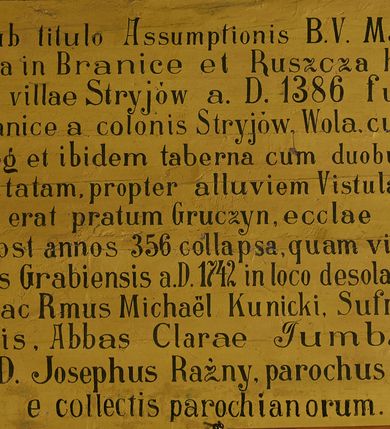 ub titulo Assumptionis B.V. Ma
a in Branice et Ruszcza h
villae Stryjów a. D. 1386 fu
anice a colonis Stryjów, Wola, cu
eg et ibidem taberna cum duobu
tatam, propter alluviem Vistula
erat pratum Gruczyn, ecclae
ost annos 356 collapsa, quam vi
s Grabiensis a.D. 1742 in loco desola
ac Rmus Michaël Kunicki, Sufr
is, Abbas Clarae Tumba
D. Josephus Rażny, parochus
e collectis parochianorum.